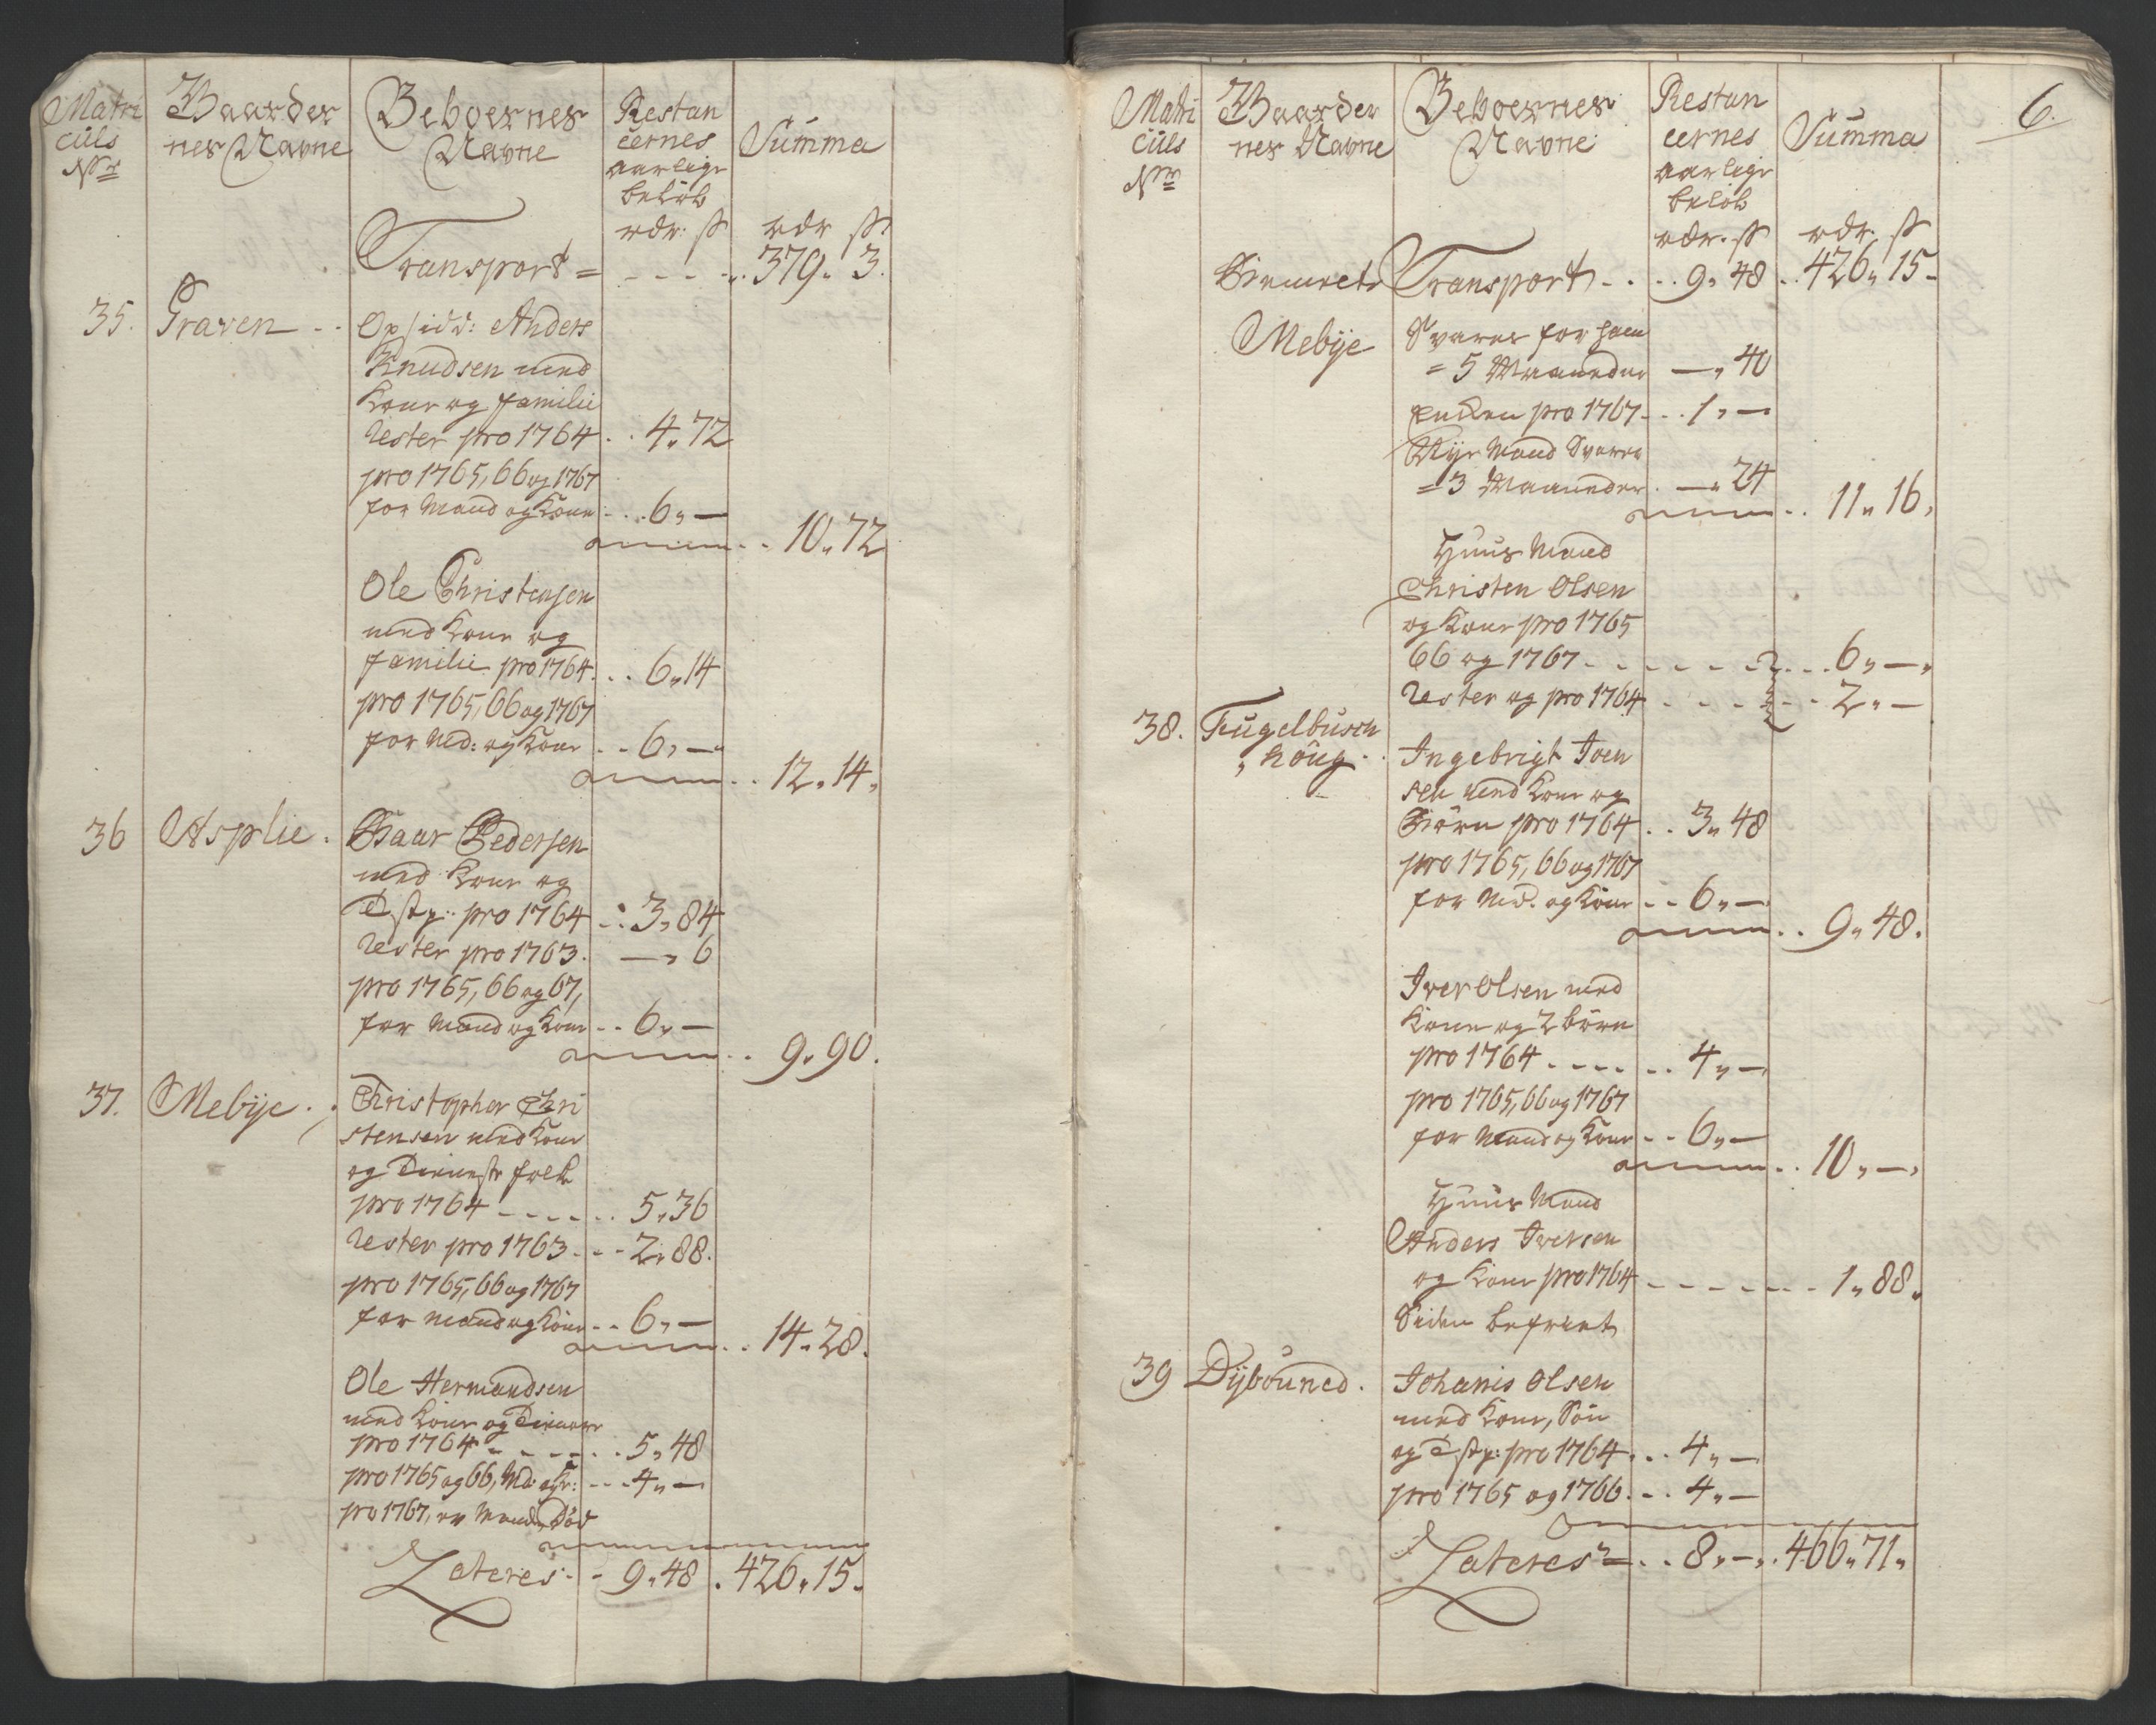 Matri
culs
Nr
Gaarder
nes Navne
Beboernes
Navne
Restan
cernes
aarlige
beløb
rdr: ß
Summa
rdr ß
Transport = - - - - 379„ 3.
35. Graven - - Opsidd: Anders
Knudsen med
Kone og familie
Rester pro 1764 . . 4„72
pro 1765, 66 og 1767
for Mand og Kone . . . 6„ —
10„72
Ole Christensen
med Kone og
familie pro 1764 . . . 6„14
pro 1765, 66 og 1767
for Md: og Kone . . 6„ —
12„14„
36 Asplie . Baar Pedersen
med Kone og
pro 1764 . . 3„84
Rester pro 1763. — „ 6
pro 1765, 66 og 67,
for Mand og Kone . . 6„ —
9„90.
37. Mebÿe . . Christopher Chri
stensen med Kone
og Tieneste folk
pro 1764 - - - - . . 5„36
Rester pro 1763 . . . 2„88.
pro 1765, 66 og 1767
for Mand og Kone . . 6„ —
14„28.
Ole Hermandsen
med Kone og Tienere
pro 1764 - - - - - . 5„48
pro 1765 og 66, Md: og K: - - . 4„ —
pro 1767, er Manden Død
Lateres . - 9„48 . 426„15.
6.
Matri
culs
Nr
Gaarder
nes Navne
Beboernes
Navne
Restan
cernes
aarlige
beløb
rdr. ß
Summa
rdr. ß
Transport - . . . 9„48 . . 426„15-
Mebÿe Svarer for ham
= 5 Maaneder — „ 40
Enken pro 1767 . . . 1„ —
Nye Mand Svarer
= 3 Maaneder . — „ 24
11„16„
Huus Mand
Christen Olsen
og Kone pro 1765
66 og 1767 - - - - - - . . . 6„ — „
Rester og pro 1764 - - - - - - 2„ —
38. Fugelbusch
„ höug . . Ingebrigt Joen
sen med Kone og
Börn pro 1764 . . 3„48
pro 1765, 66 og 1767
for Md. og Kone - - 6„ —
9„48.
Iver Olsen med
Kone og 2 børn
pro 1764 . - - - . . 4„ —
pro 1765, 66 og 1767
for Mand og Kone - - 6„ —
10„ — „
Huus Mand
Anders Iversen
og Kone pro 1764 - - - - - - - 1„88„
Siden befriet
39 Dÿbouned . Johanis Olsen
med Kone, Søn
og pro 1764 . . . 4„ —
pro 1765 og 1766 . . . 4„ —
Lateres = . . 8„ — „ . 466„71„